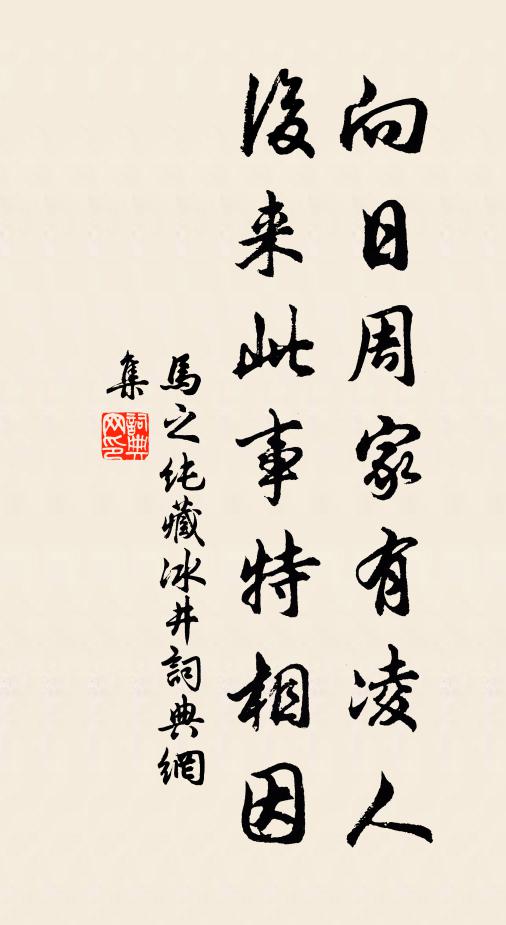 向日周家有凌人
後来此事特相因
馬之純藏冰井詞典網
集
詞典
网印